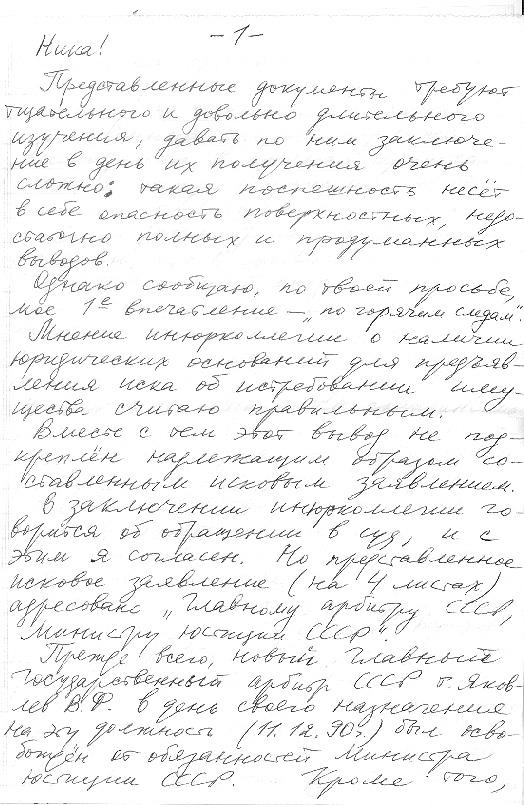 -1-
Ника!
Представленные документы требуют
тщательного и довольно длительного
изучения, давать по ним заключе-
ние в день их получения очень
сложно: такая поспешность несёт
в себе опасность поверхностных, недо-
статочно полных и продуманных
выводов.
Однако сообщаю, по твоей просьбе,
мое 1е впечатление – „по горячим следам".
Мнение инюрколлегии о наличии
юридических оснований для предъяв-
ления иска об истребовании иму-
щества считаю правильным.
Вместе с тем этот вывод не под-
креплён надлежащим образом со-
ставленным исковым заявлением.
В заключении инюрколлегии го-
ворится об обращении в суд, и с
этим я согласен. Но представленное
исковое заявление (на 4 листах)
адресовано „Главному арбитру СССР,
Министру юстиции СССР".
Прежде всего, новый Главный
государственный арбитр СССР т. Яков-
лев В.Ф. в день своего назначения
на эту должность (11.12.90г.) был осво-
бождён от обязанностей Министра
юстиции СССР. Кроме того,